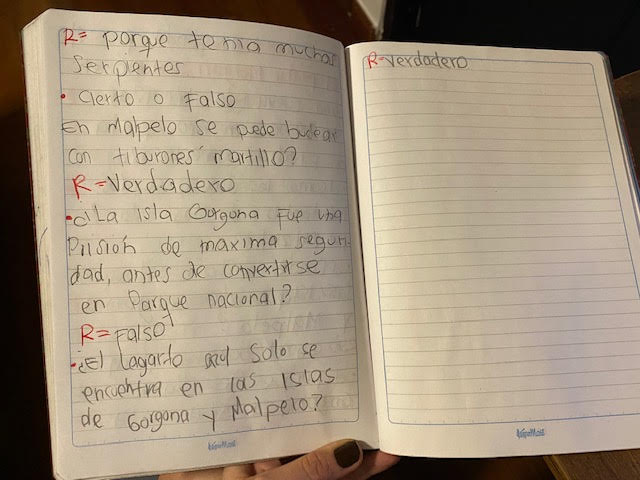 R= porque tenia muchas
serpientes
• cierto o Falso
En Malpelo se puede bucear
con tiburones martillo?
R=Verdadero
•¿La isla Gorgona Fue una
Pilsión de maxima seguri
dad, antes de convertirse
en Parque nacional?
R=Falso
•¿El lagarto azul Solo se
encuentra en las Islas
de Gorgona y Malpelo?
R-Verdadero